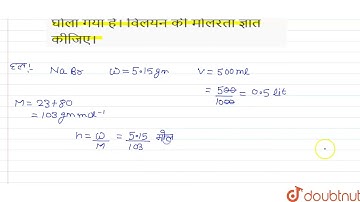 घोला गया है। विलयन की मोलरता ज्ञात
कीजिए।
हल:- NaBr W = 5.15 gm V = 500 ml
= 500/1000 = 0.5 lit
M = 23+80
= 103 gm mol⁻¹
n = W/M = 5.15/103 मोल
doubtnut